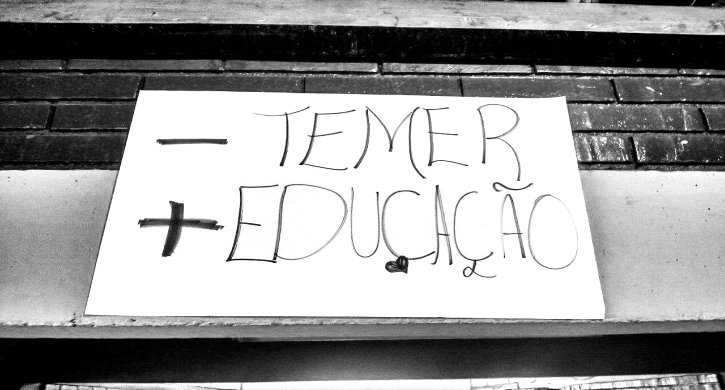 - TEMER
+ EDUCAÇÃO